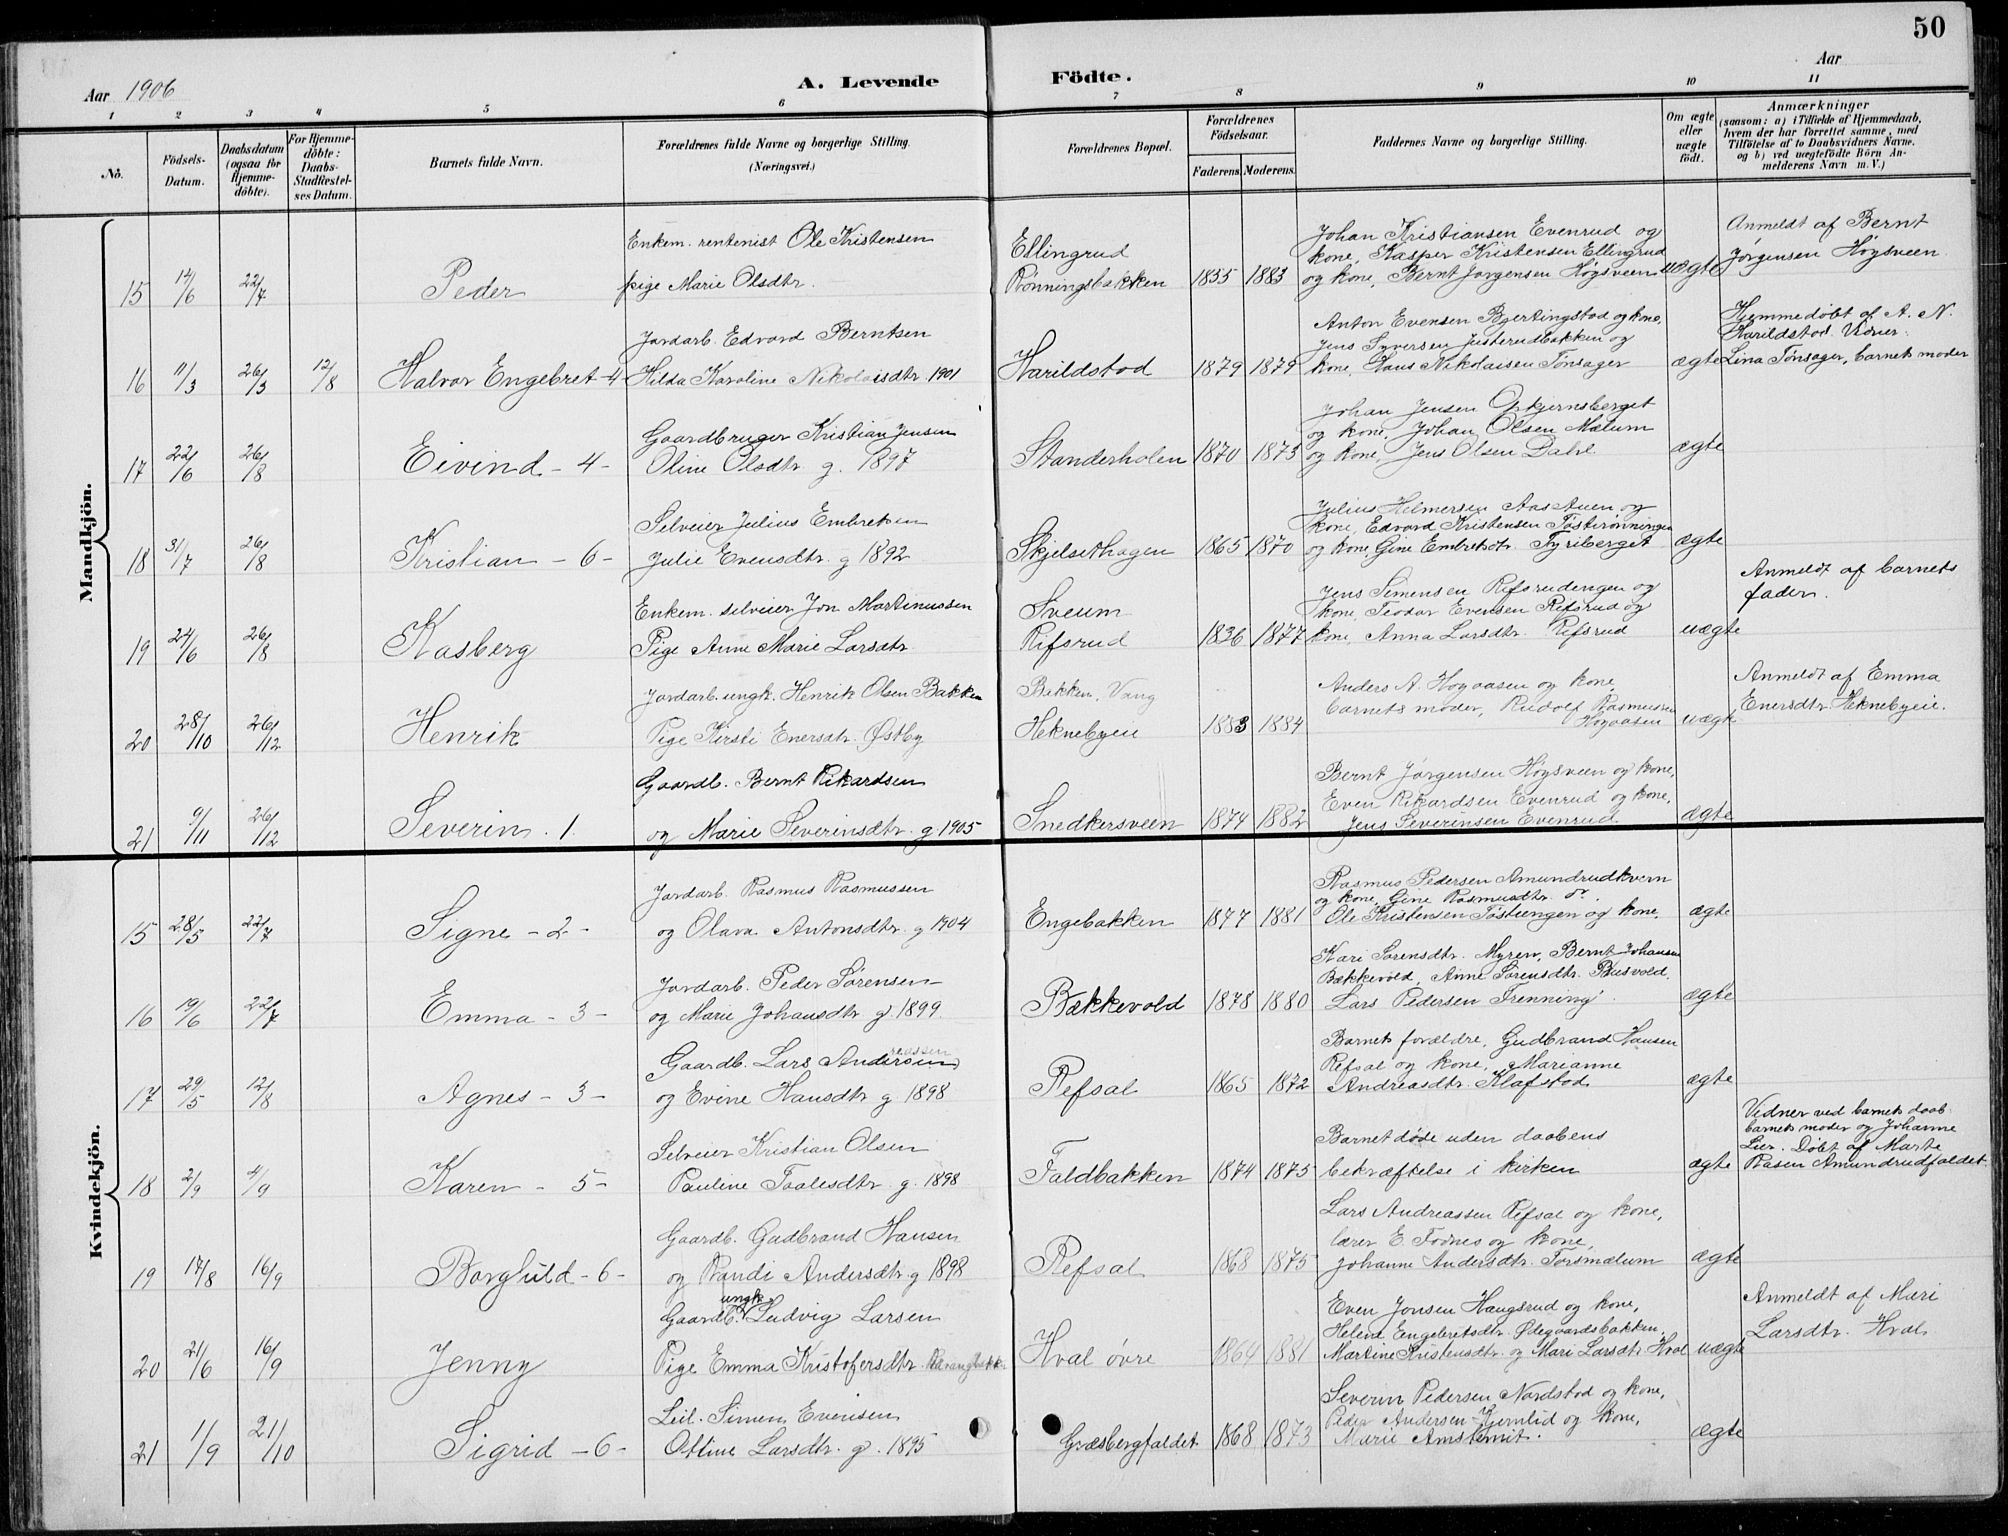 50
Aar 1906
A. Levende Födte.
Aar
1 2 3 4 5 6 7 8 9 10 11
No.
Födsels-Datum.
Daabsdatum (ogsaa for Hjemmedöbte).
For Hjemmedöbte: Daabs-Stadfæstelses Datum.
Barnets fulde Navn.
Forældrenes fulde Navne og borgerlige Stilling. (Næringsvei.)
Forældrenes Bopæl.
Forældrenes Födselsaar.
Faderens. Moderens.
Faddernes Navne og borgerlige Stilling.
Om ægte eller uægte födt.
Anmærkninger (saasom: a) i Tilfælde af Hjemmedaab, hvem der har forrettet samme, med Tilföielse af to Daabsvidners Navne, og b) ved uægtefödte Börn Anmelderens Navn m. V.)
Mandkjön.
Enkem. rentenist Ole Kristensen
Ellingrud
Johan Kristiansen Evenrud og
kone, Kasper Kristensen Ellingrud
Anmeldt af Bernt
15 14/6 22/7 Peder pige Marie Olsdtr. Rønningsbakken 1835 1883 og kone, Bernt Jørgensen Høgsveen uægte Jørgensen Høgsveen
Jordarb. Edvard Berntsen
Anton Evensen Bjertingstad og kone,
Jens Syversen Justerudbakken og
Hjemmedøbt af A. N.
Harildstad. Vidner:
16 11/3 26/3 12/8 Halvor Engebret - 4 Hilda Karoline Nikolaisdtr. 1901 Harildstad 1879 1879 kone, Hans Nikolaisen Tonsager ægte Lina Tonsager, barnets moder
Gaardbruger Kristian Jensen
Johan Jensen
og kone, Johan Olsen Mælum
17 22/6 26/8 Eivind - 4 - Oline Olsdtr g. 1897 Standerholen 1870 1873 og kone, Jens Olsen Dahl ægte
Selveier Julius Embretsen
Julius Helmersen Aasstuen og
kone, Edvard Kristensen Tøsterønningen
18 31/7 26/8 Kristian - 6 - Julie Evensdtr. g 1892 Skjelsethagen 1865 1870 og kone, Gine Embretsdtr. Tyriberget ægte
Enkem. selveier Jon Martinussen
Sveum
Jens Simensen Rifsrudengen og
kone, Teodor Evensen Rifsrud og
Anmeldt af barnets
fader.
19 24/6 26/8 Kasberg Pige Anne Marie Larsdtr. Rifsrud 1836 1877 kone, Anna Larsdtr. Rifsrud uægte
Jordarb. ungk. Henrik Olsen Bakken
Bakken, Vang
Anders A. Høgaasen og kone,
barnets moder, Rudolf Rasmussen
Anmeldt af Emma
Enersdtr. Heknebyeie.
20 28/10 26/12 Henrik Pige Kirsti Enersdtr. Østby Heknebyeie 1883 1884 Høgaasen uægte
Gaardb. Bernt Rikardsen
Bernt Jørgensen Høgsveen og kone,
Even Rikardsen Evenrud og kone,
21 9/11 26/12 Severin. 1. og Marie Severinsdtr. g 1905 Snedkersveen 1874 1882 Jens Severinsen Evenrud. ægte
Kvindekjön.
Jordarb. Rasmus Rasmussen
Rasmus Pedersen Amundrudkvern
og kone, Gine Rasmusdtr. do.
15 28/5 22/7 Signe - 2 - og Olava Antonsdtr. g 1904 Engebakken 1877 1881 Ole Kristensen Tøstiengen og kone. ægte
Jordarb. Peder Sørensen
Kari Sørensdtr. Myren, Bernt Johansen
Bækkevold, Anne Sørensdtr. Busvold.
16 19/6 22/7 Emma - 3 - og Marie Johansdtr g 1899. Bækkevold 1878 1880 Lars Pedersen Frenning. ægte
Gaardb. Lars Andersen
reassen
Barnets forældre, Gudbrand Hansen
Refsal og kone, Marianne
17 29/5 12/8 Agnes - 3 - og Evine Hansdtr g. 1898 Refsal 1865 1872 Andreasdtr. Klafstad ægte
Selveier Kristian Olsen
Barnet døde uden daabens
Vidner ved barnets daab
barnets moder og Johanne
Lier. Døbt af Marte
18 2/9 4/9 Karen - 5 - Pauline Taalesdtr. g. 1898 Faldbakken 1874 1875 bekræftelse i kirken ægte Rasen Amundrudfaldet.
Gaardb. Gudbrand Hansen
Lars Andreassen Refsal og kone,
lærer E. Fodnes og kone,
19 17/8 16/9 Borghild - 6 - og Randi Andersdtr g 1898 Refsal 1868 1875 Johanne Andersdtr. Forsmælum ægte
ungk.
Gaardb. Ludvig Larsen
Even Jonsen Haugsrud og kone,
Helene Engebretsdtr. Ødegaardsbakken.
Anmeldt af Mari
Larsdtr. Hval
20 21/6 16/9 Jenny Pige Emma Kristofersdtr. Hval øvre 1864 1881 Martine Kristensdtr. og Mari Larsdtr. Hval uægte
Leil. Simen Evensen
Severin Pedersen Nordstad og kone,
Peder Andersen Kjernlid og kone,
21 1/9 21/10 Sigrid - 6 - Ottine Larsdtr. g. 1895 Græsbergfaldet 1868 1873 Marie ægte